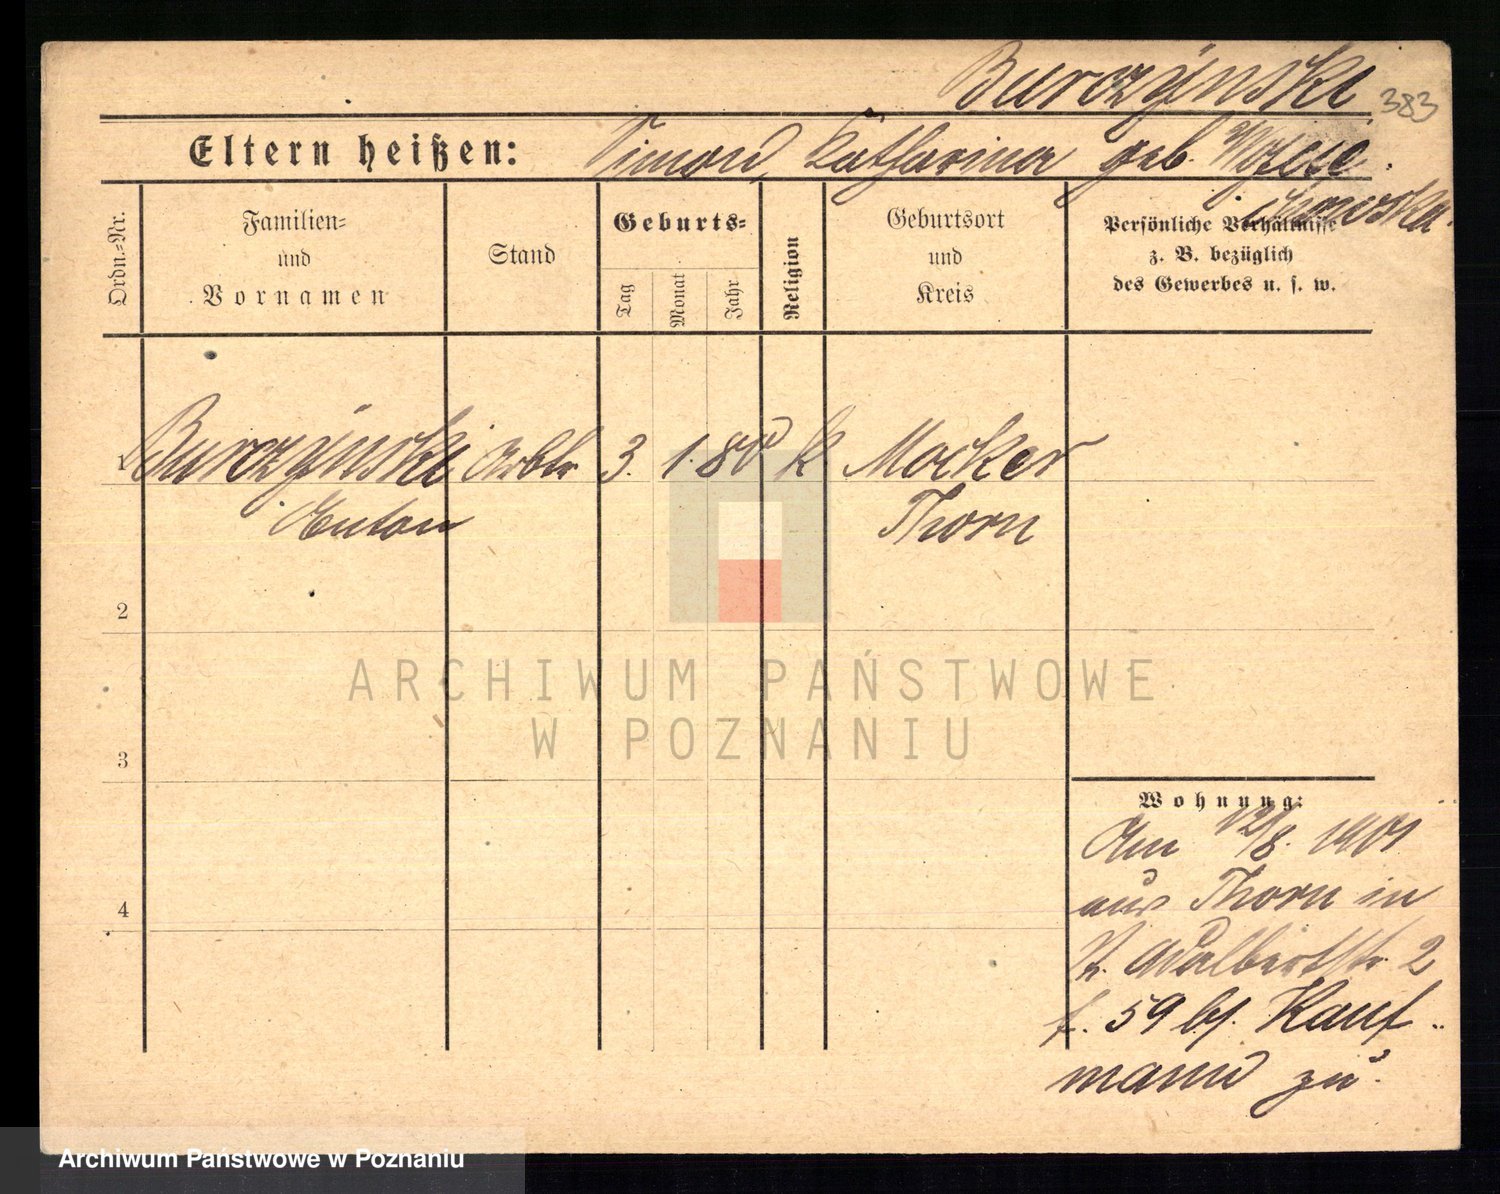 Burczynski 383
Eltern heißen: Simon, Katharina geb. Wojcie
chowska.
Ordn.-Nr.
Familien-
und
Vornamen
Stand
Geburts-
Tag
Monat
Jahr
Religion
Geburtsort
und
Kreis
Persönliche Verhältnisse
z. B. bezüglich
des Gewerbes u. s. w.
1 Burczynski Arbtr 3. 1. 80 k Mocker
Anton Thorn
2
ARCHIWUM PAŃSTWOWE
W POZNANIU
3
Wohnung:
Am 12/8. 1901
aus Thorn in
St. Adalbertstr. 2
f. 59 bj. Kauf-
mann zu.
4
Archiwum Państwowe w Poznaniu